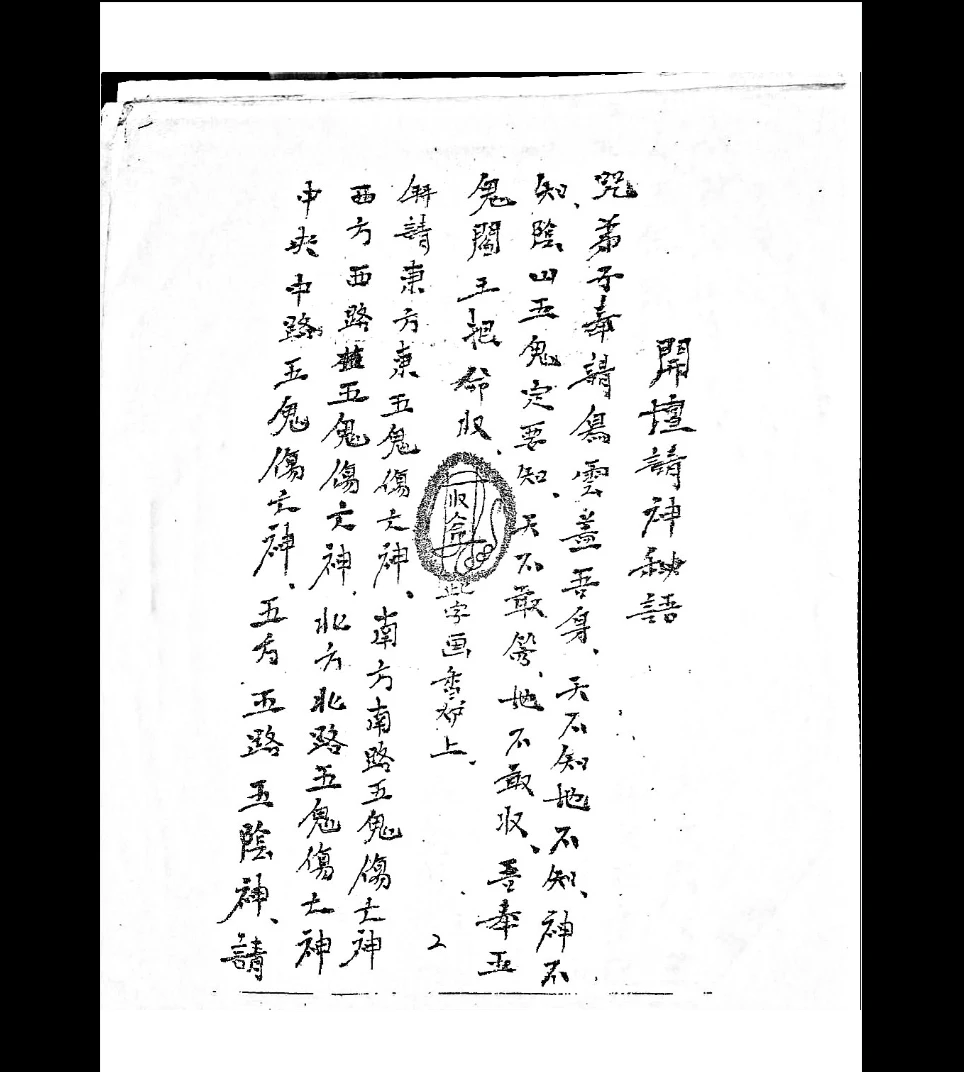 開壇請神秘語
咒弟子奉請烏雲蓋吾身、天不知地不知、神不
知、陰山五鬼定要知、天不敢答、地不敢收、吾奉五
鬼閻王把命收、
收命
此字画香炉上、
再請東方東五鬼傷亡神、南方南路五鬼傷亡神
西方西路五鬼傷亡神、北方北路五鬼傷亡神
中央中路五鬼傷亡神、五方五路五陰神、請
2